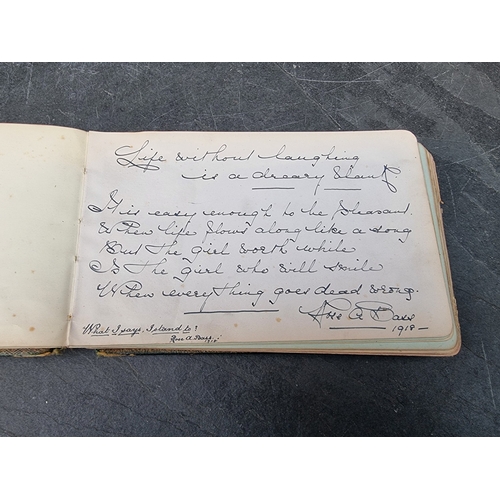 Life without laughing
is a dreary blank.
It is easy enough to be pleasant.
When life flows along like a song
But the girl worth while
Is the girl who will smile
When everything goes dead wrong.
Rose A Bass
1918-
What I says, I stand to!
Rose A. Bass.